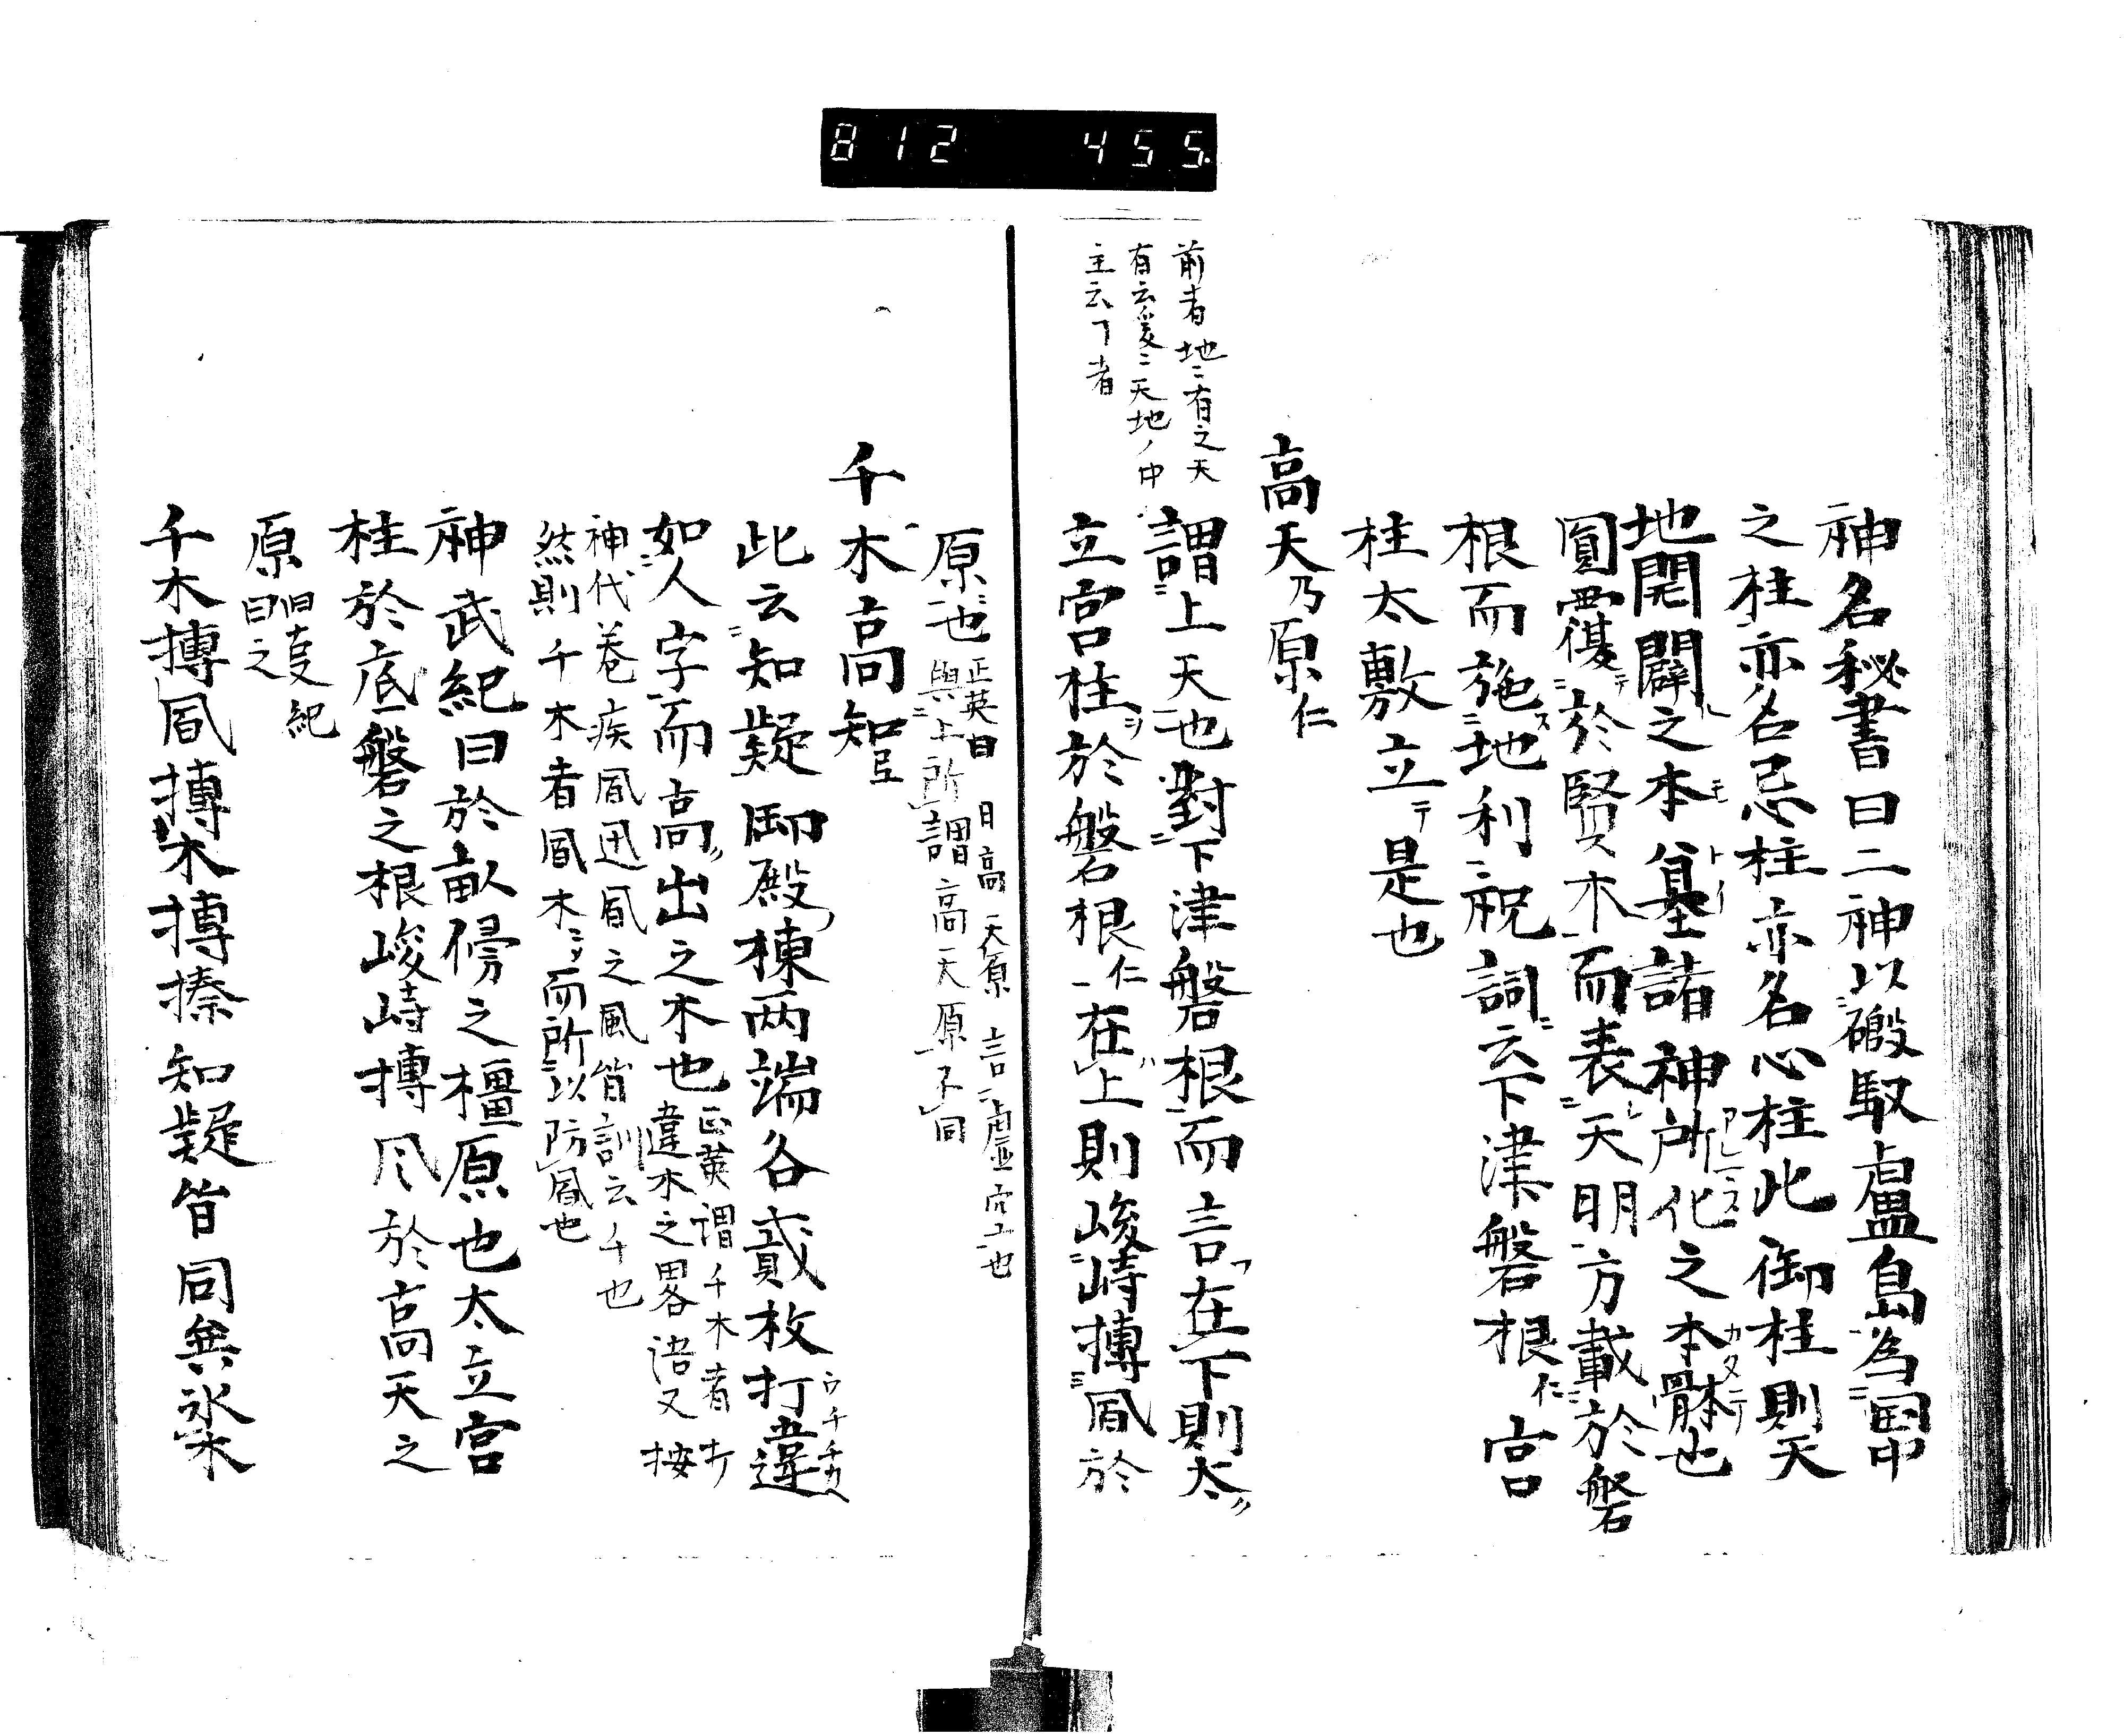 812 455.
神名秘書曰二神以磤馭盧島為国中
之柱亦名忌柱亦名心柱此御柱則天
地開闢之本基諸神所化之本體也
圓覆於賢木而表天明方載於磐
根而施地利祝詞云下津磐根仁宮
柱太敷立テ是也
高天乃原仁
謂上天也對下津磐根而言在下則太
立宮柱於磐根仁在上則峻峙摶風於
前者地ニ有之天
有云爰ニ天地ノ中
主云フ者
原也
正英曰 日高天原言虛空也
與上所謂高天原不同
千木高知
此云知疑御殿棟両端各貳枚打違
如人字而高出之木也
正英謂千木者打
違木之畧語又按
神代巻疾風迅風之風皆訓云千也
然則千木者風木ニシ而所以防風也
神武紀曰於畝傍之橿原也太立宮
柱於底磐之根峻峙摶风於高天之
原
旧事紀
曰之
千木摶風摶木摶搸知疑皆同矣氷木